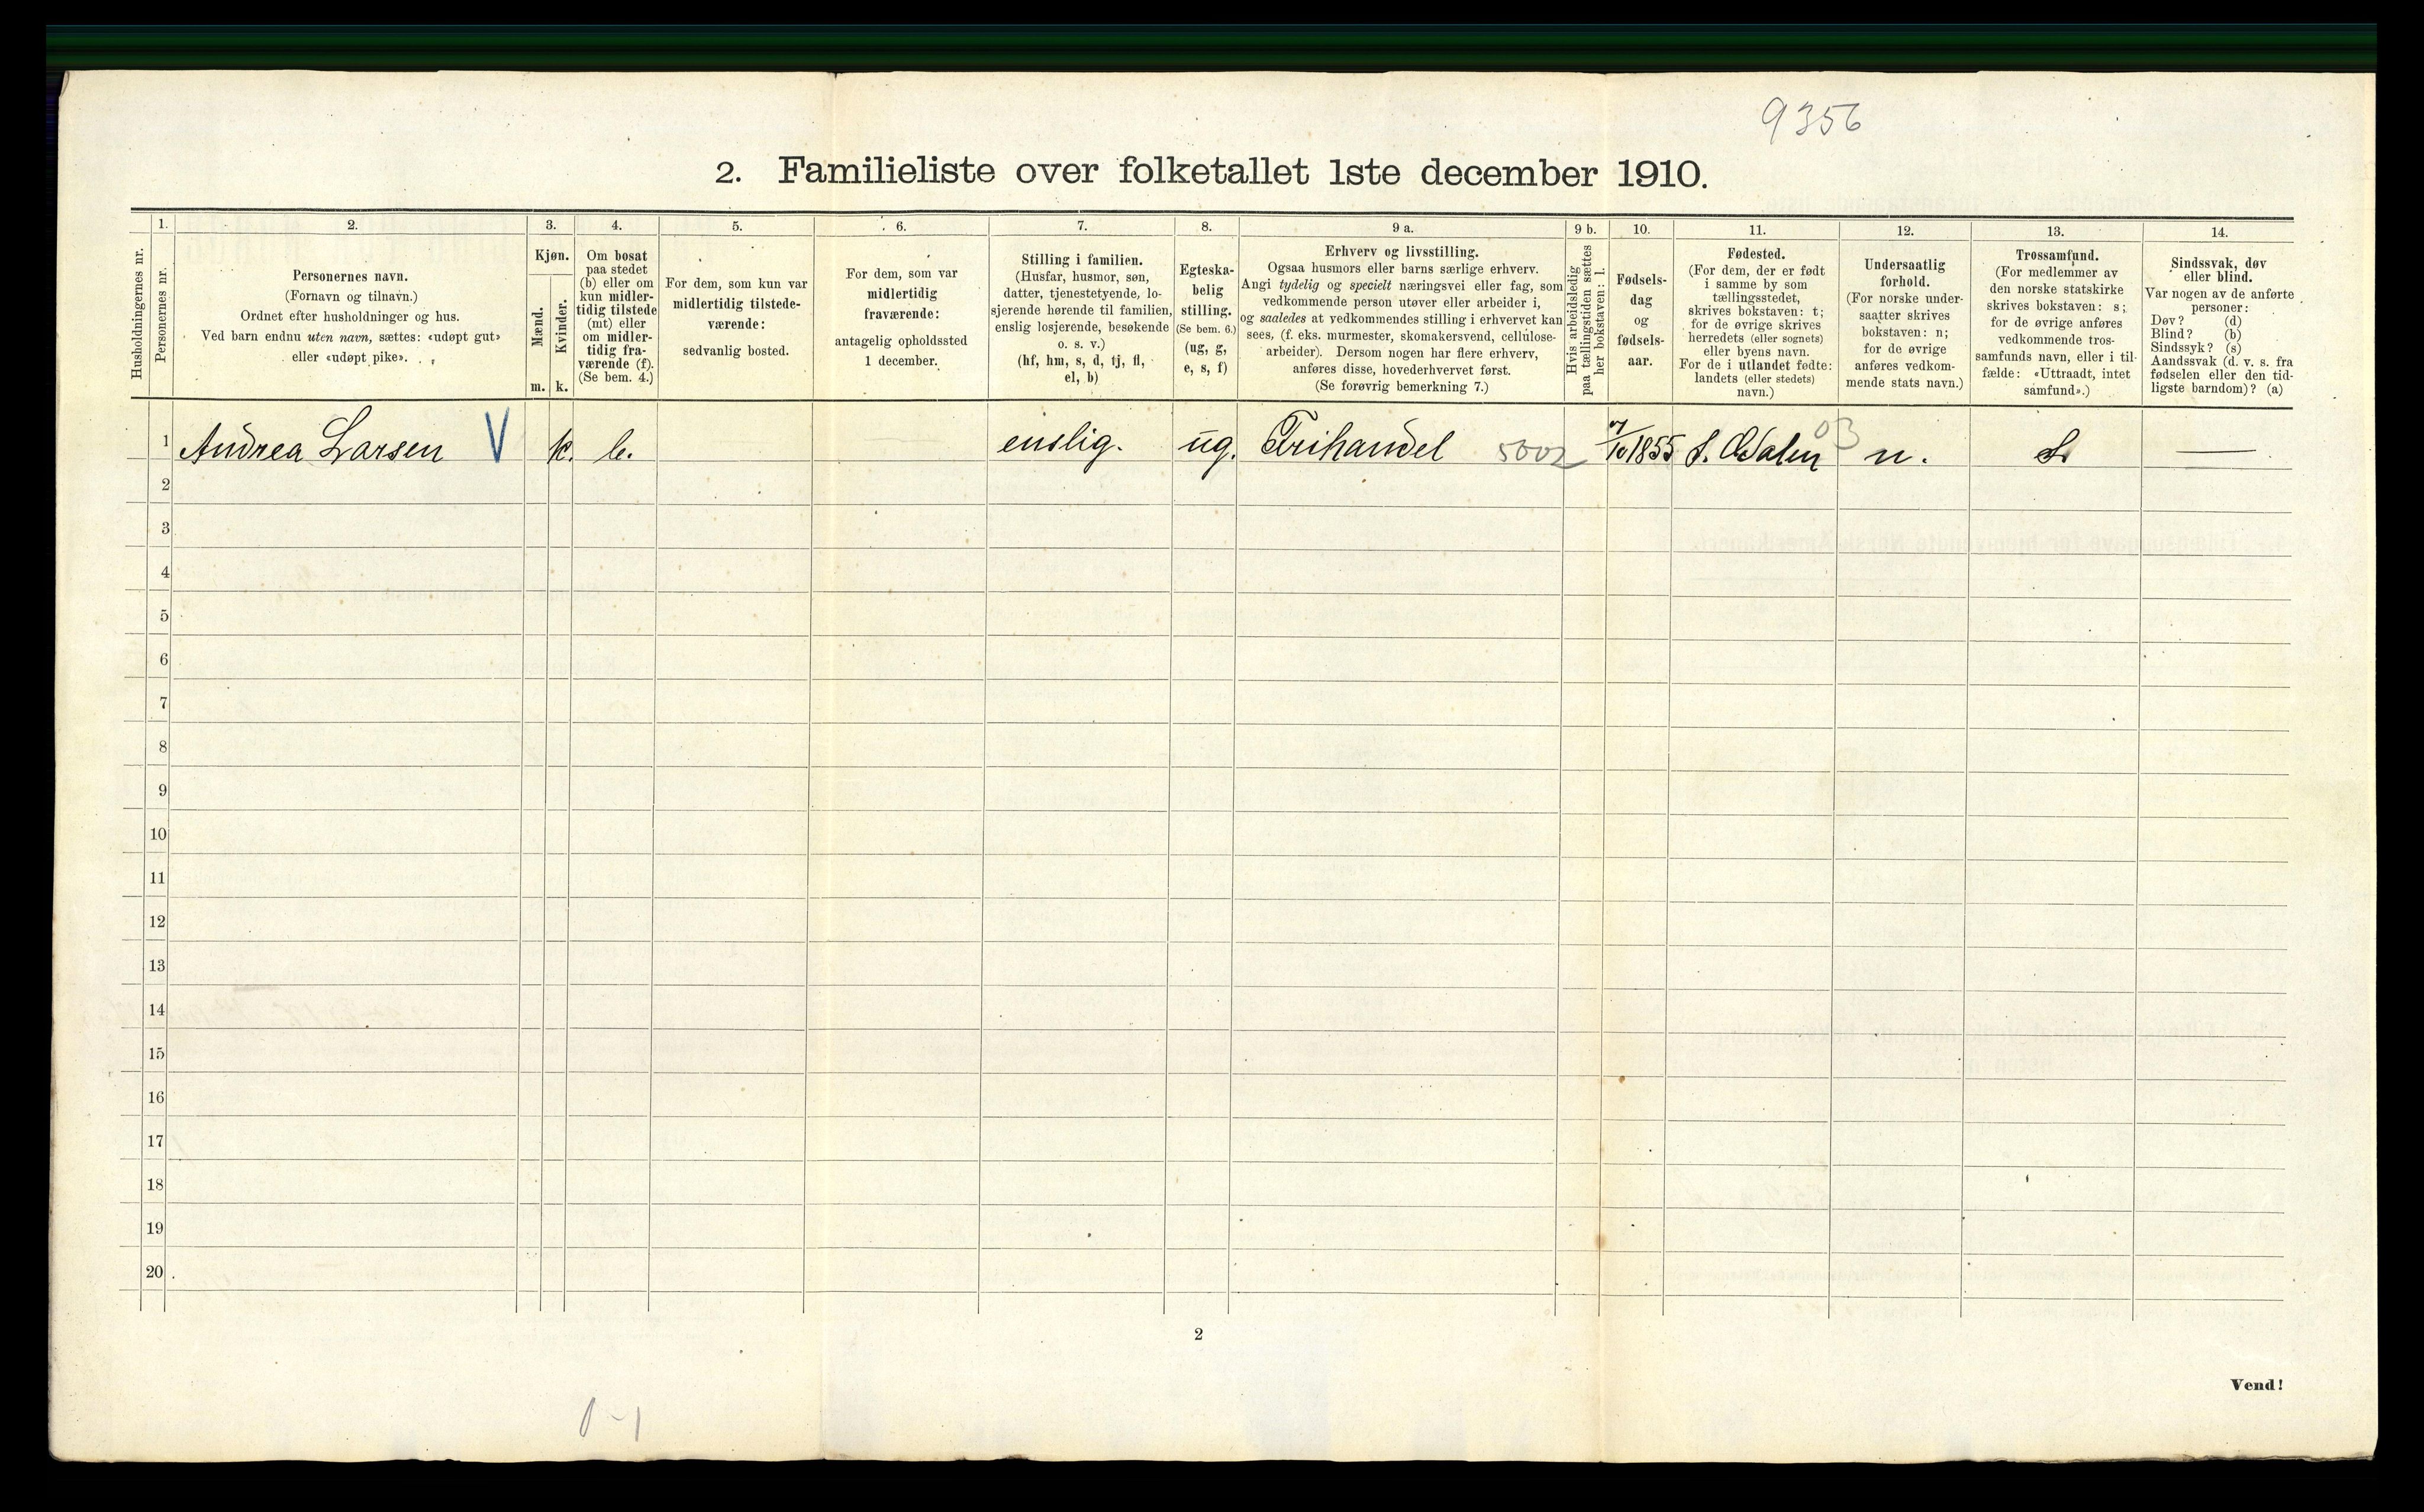 9356
2. Familieliste over folketallet 1ste december 1910.
Husholdningernes nr.
1.
Personernes nr.
2.
Personernes navn.
(Fornavn og tilnavn.)
Ordnet efter husholdninger og hus.
Ved barn endnu uten navn, sættes: «udøpt gut»
eller «udøpt pike».
3.
Kjøn.
Mænd.
Kvinder.
m. k.
4.
Om bosat
paa stedet
(b) eller om
kun midler-
tidig tilstede
(mt) eller
om midler-
tidig fra-
værende (f).
(Se bem. 4.)
5.
For dem, som kun var
midlertidig tilstede-
værende:
sedvanlig bosted.
6.
For dem, som var
midlertidig
fraværende:
antagelig opholdssted
1 december.
7.
Stilling i familien.
(Husfar, husmor, søn,
datter, tjenestetyende, lo-
sjerende hørende til familien,
enslig losjerende, besøkende
o. s. v.)
(hf, hm, s, d, tj, fl,
el, b)
8.
Egteska-
belig
stilling.
(Se bem. 6.)
(ug, g,
e, s, f)
9 a.
Erhverv og livsstilling.
Ogsaa husmors eller barns særlige erhverv.
Angi tydelig og specielt næringsvei eller fag, som
vedkommende person utøver eller arbeider i,
og saaledes at vedkommendes stilling i erhvervet kan
sees, (f. eks. murmester, skomakersvend, cellulose-
arbeider). Dersom nogen har flere erhverv,
anføres disse, hovederhvervet først.
(Se forøvrig bemerkning 7.)
9 b.
Hvis arbeidsledig
paa tællingstiden sættes
her bokstaven: l.
10.
Fødsels-
dag
og
fødsels-
aar.
11.
Fødested.
(For dem, der er født
i samme by som
tællingsstedet,
skrives bokstaven: t;
for de øvrige skrives
herredets (eller sognets)
eller byens navn.
For de i utlandet fødte:
landets (eller stedets)
navn.)
12.
Undersaatlig
forhold.
(For norske under-
saatter skrives
bokstaven: n;
for de øvrige
anføres vedkom-
mende stats navn.)
13.
Trossamfund.
(For medlemmer av
den norske statskirke
skrives bokstaven: s;
for de øvrige anføres
vedkommende tros-
samfunds navn, eller i til-
fælde: «Uttraadt, intet
samfund».)
14.
Sindssvak, døv
eller blind.
Var nogen av de anførte
personer:
Døv? (d)
Blind? (b)
Sindssyk? (s)
Aandssvak (d. v. s. fra
fødselen eller den tid-
ligste barndom)? (a)
1 Andrea Larsen V k. b. enslig. ug. Frihandel 5002 7/10 1855 S. Odalen 03 n. S. —
2
3
4
5
6
7
8
9
10
11
12
13
14
15
16
17
18
19
20
2
Vend!
0-1